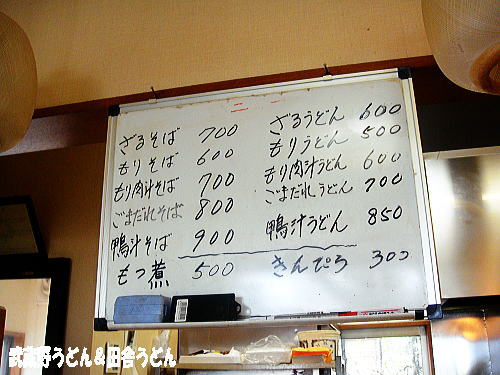 メニュー
ざるそば 700
もりそば 600
もり肉汁そば 700
ごまだれそば 800
鴨汁そば 900
もつ煮 500
ざるうどん 600
もりうどん 500
もり肉汁うどん 600
ごまだれうどん 700
鴨汁うどん 850
きんぴら 300
武蔵野うどん&田舎うどん